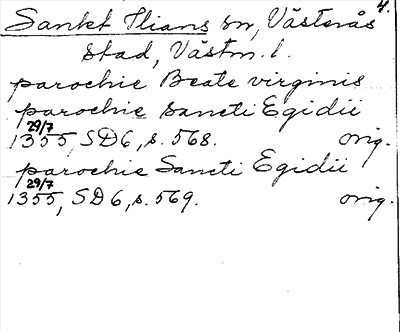 4.
Sankt Ilians sn, Västerås
stad, Västm. l.
parochie Beate virginis
parochie sancti Egidii
29/7
1355, SD6, s. 568. orig.
parochie Sancti Egidii
29/7
1355, SD6, s. 569. orig.